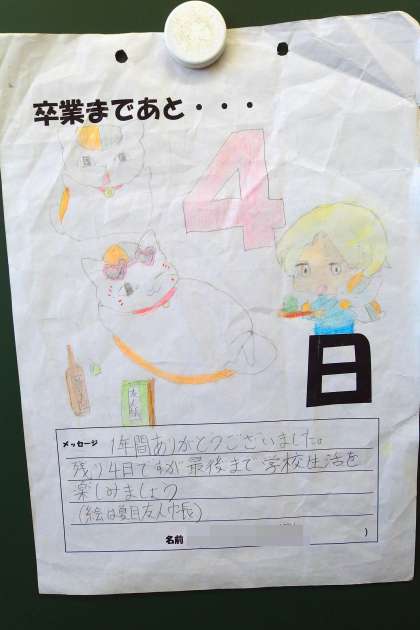 卒業まであと・・・
4
日
友人帳
メッセージ 1年間ありがとうございました。
残り4日ですが最後まで学校生活を
楽しみましょう
(絵は夏目友人帳)
名前 )